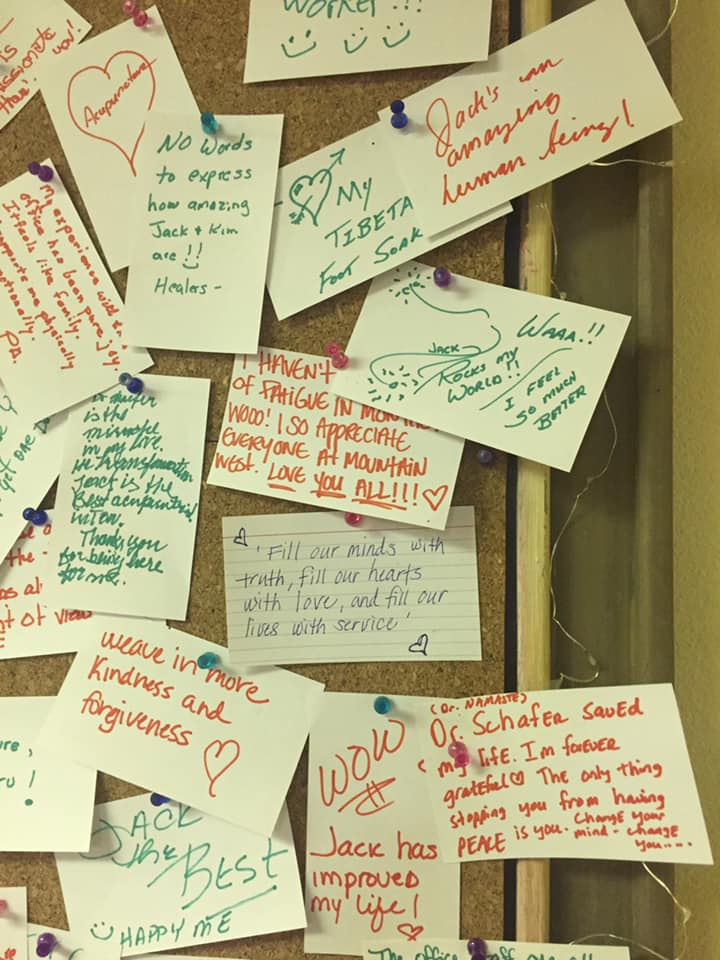 WORKER!!!
Acupuncture
Jack's an
amazing
human being!
NO Words
to express
how amazing
Jack + Kim
are!!
Healers -
My
TIBETA
FOOT SOAK
my experience with
office has been pure joy
It feels like family.
me physically
WAAA!!
JACK
ROCKS MY
WORLD!!
I FEEL
SO MUCH
BETTER
I HAVEN'T
OF FATIGUE IN
WOOO! I SO APPRECIATE
EVERYONE AT MOUNTAIN
WEST. LOVE YOU ALL!!!
is the
in my live.
Jack is the
Best acupuncturist
Thank you
for being here
for me.
'Fill our minds with
truth, fill our hearts
with love, and fill our
lives with service'
nt of view
weave in more
Kindness and
forgiveness
(Dr. NAMASTE)
Dr. Schafer saved
my life. I'm forever
grateful The only thing
stopping you from having
PEACE is you. Change your
mind - change
you....
WOW
Jack has
improved
my life!
JACK
THE
BEST
HAPPY ME
The office staff are all